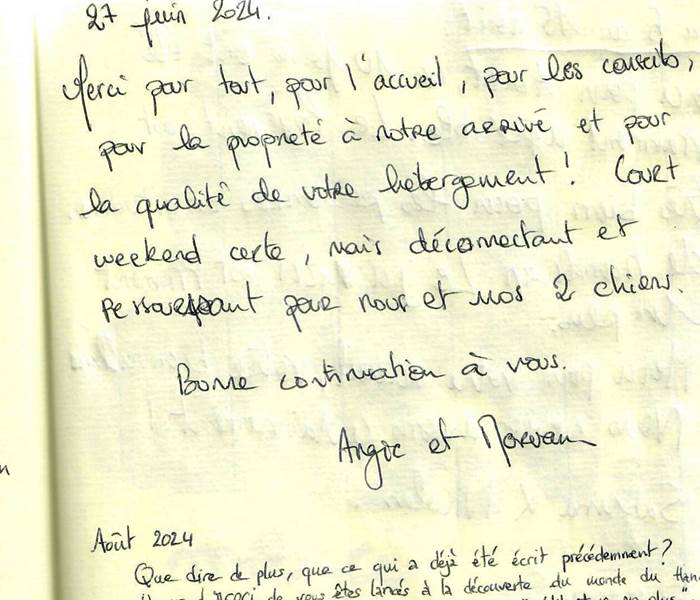 27 juin 2024.
Merci pour tout, pour l'accueil, pour les conseils,
pour la propreté à notre arrivé et pour
la qualité de votre hébergement ! Court
weekend certe, mais déconnectant et
ressourçant pour nous et nos 2 chiens.
Bonne continuation à vous.
Angie et Morvan
Août 2024
Que dire de plus, que ce qui a déjà été écrit précédemment ?
de vous êtes lancés à la découverte du monde du Han